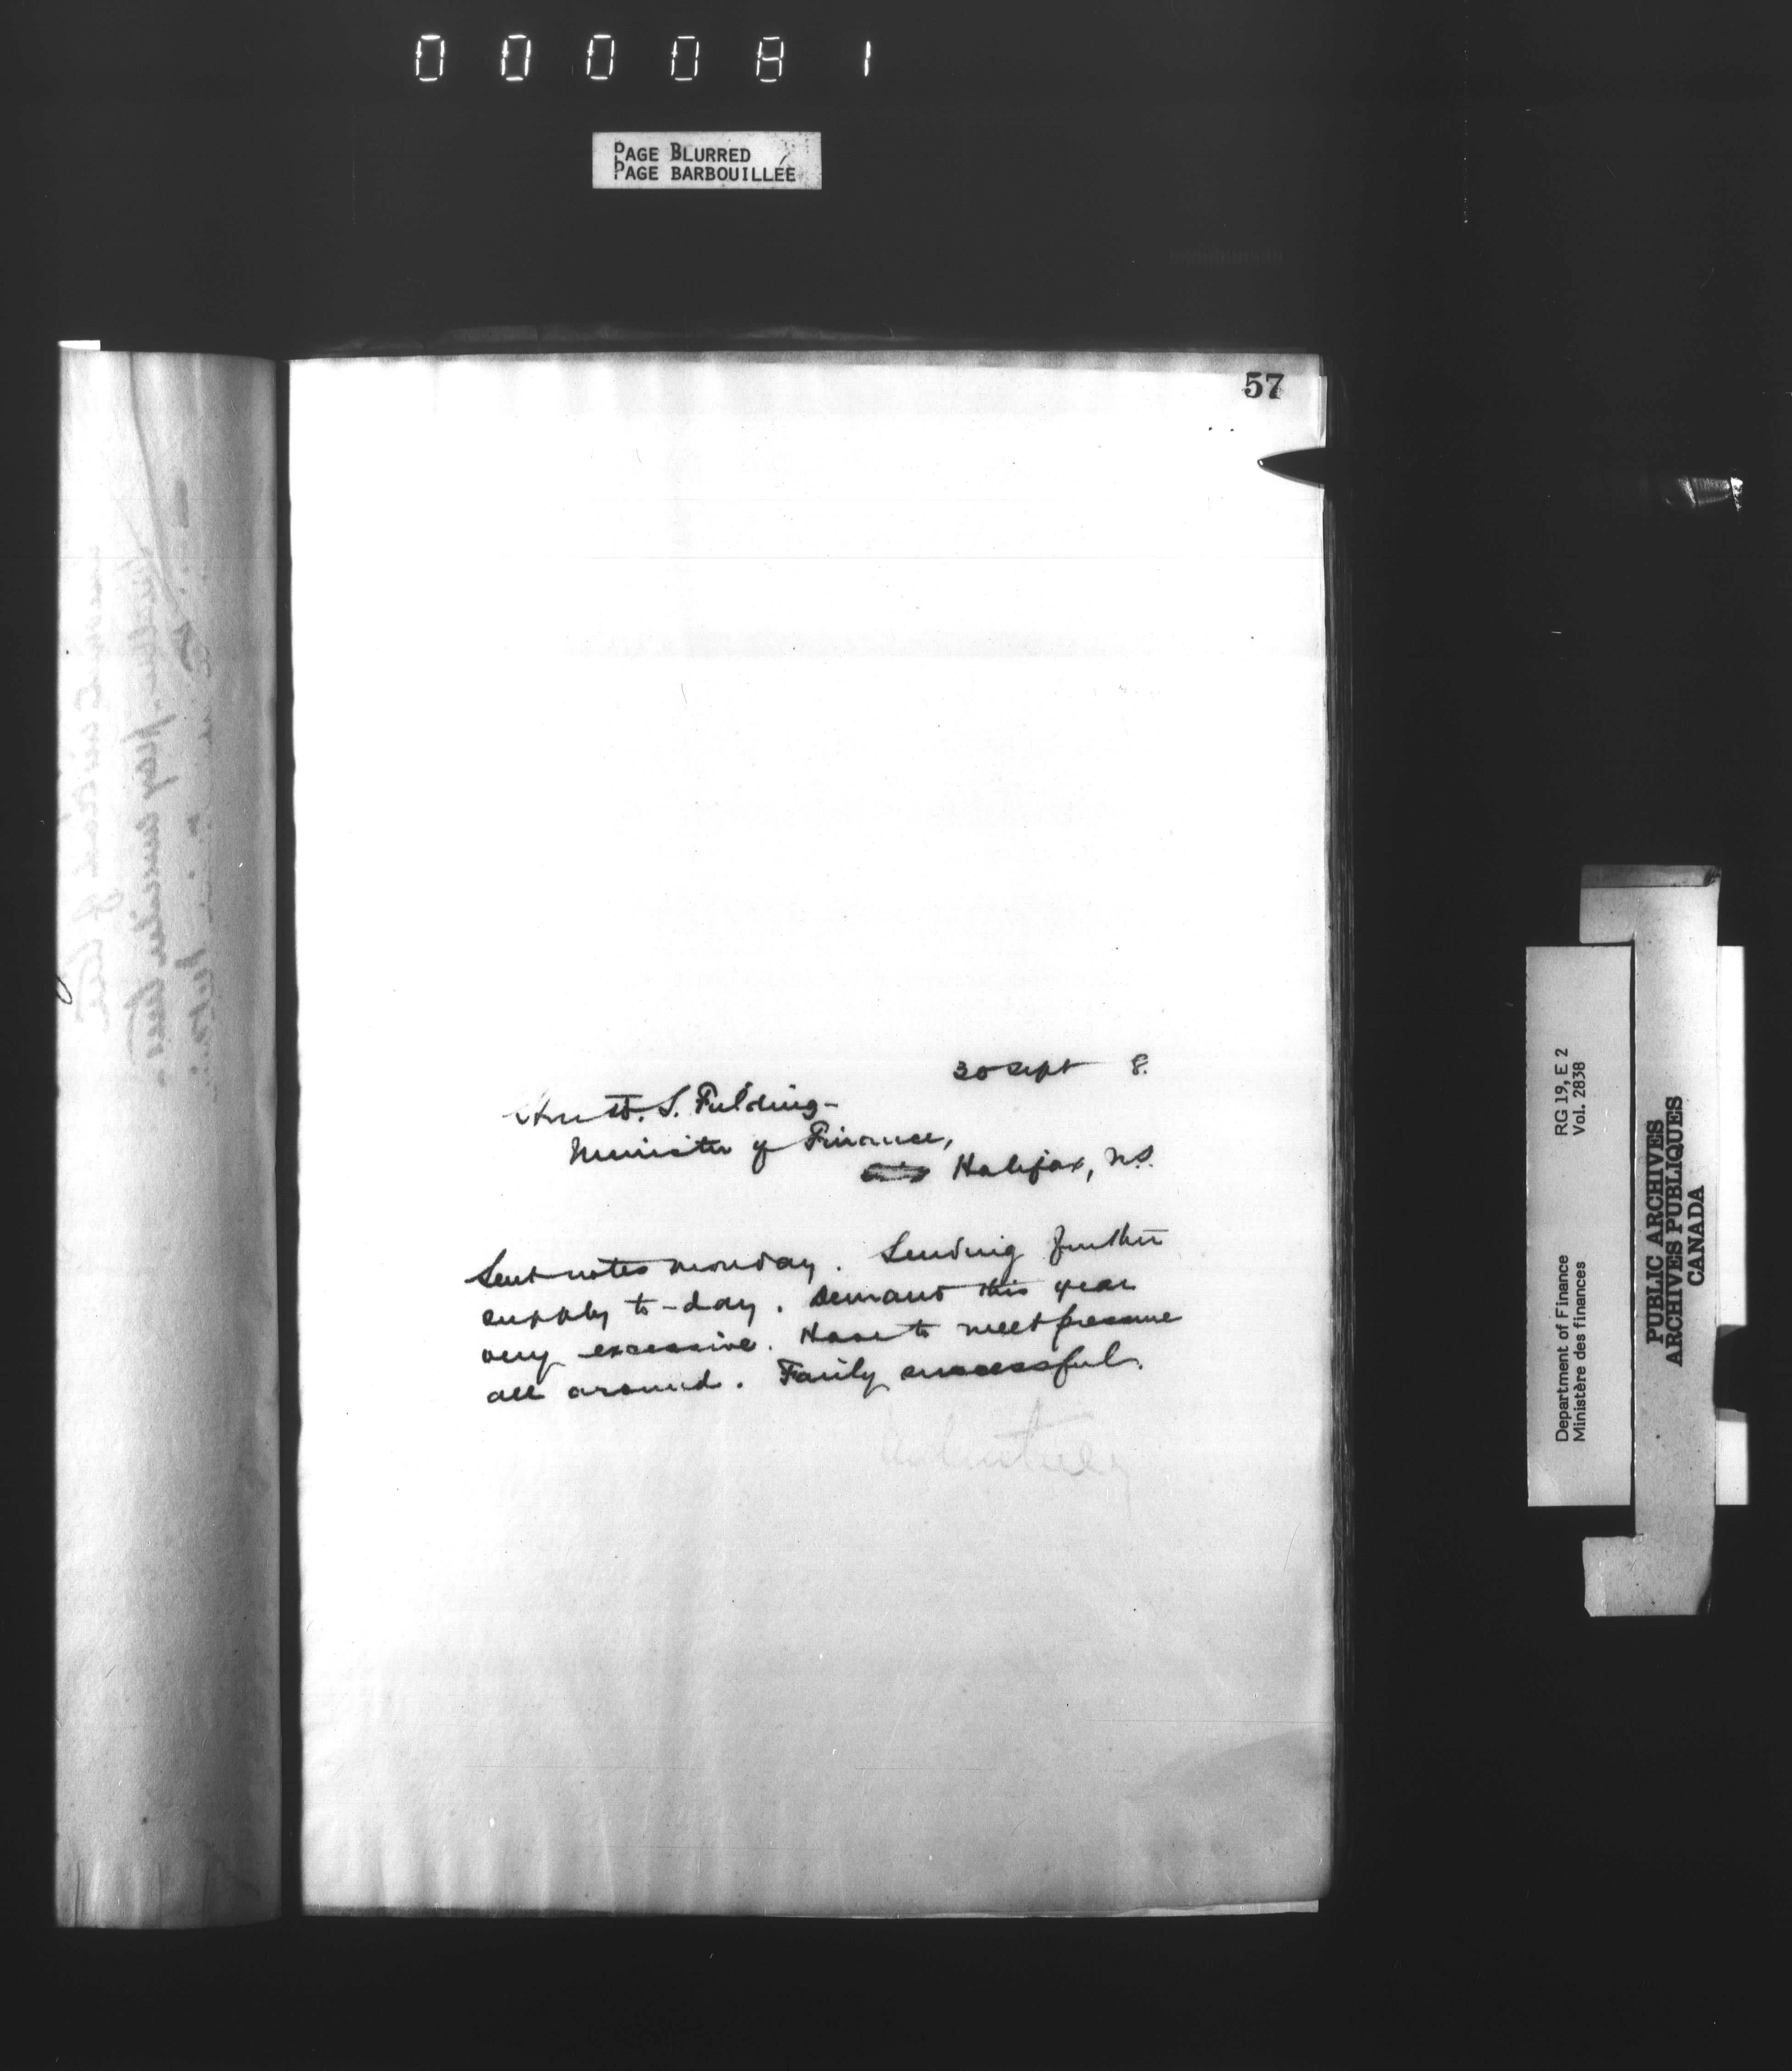 000081
PAGE BLURRED
PAGE BARBOUILLÉE
57
30 Sept 8.
Hon W. S. Fielding-
Minister of Finance,
Halifax, N.S.
Sent notes Monday. Sending further
supply to-day. Demand this year
very excessive. Have to meet pressure
all around. Fairly successful.
RG 19, E 2
Vol. 2838
Department of Finance
Ministère des finances
PUBLIC ARCHIVES
ARCHIVES PUBLIQUES
CANADA